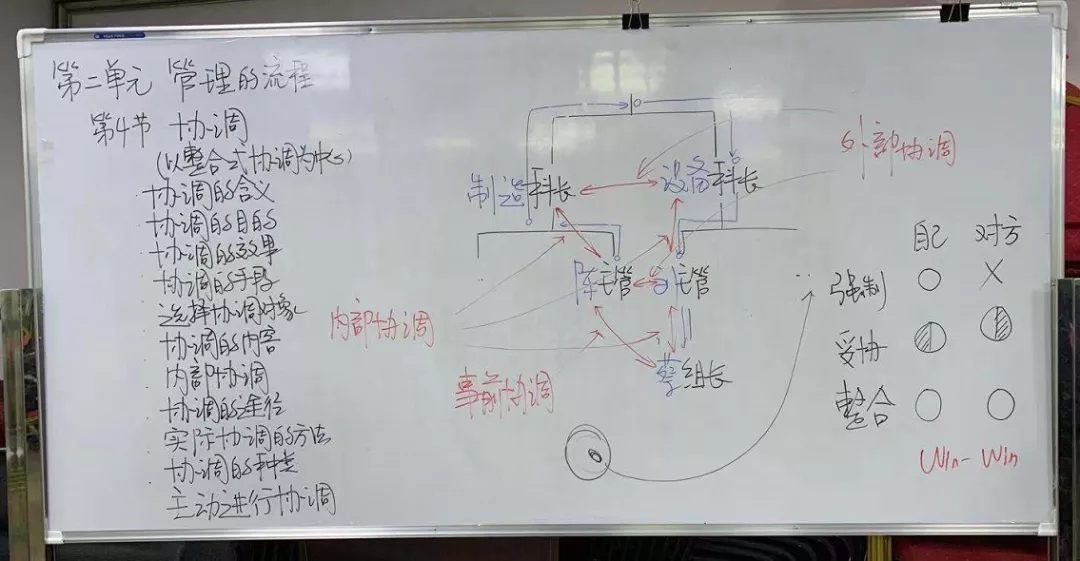 第二单元 管理的流程
第4节 协调
(以整合式协调为中心)
协调的含义
协调的目的
协调的效果
协调的手段
选择协调对象
协调的内容
内部协调
协调的途径
实际协调的方法
协调的种类
主动进行协调
制造科长
设备科长
外部协调
陈主管
主管
内部协调
组长
事前协调
自己 对方
强制 ○ ×
妥协
整合 ○ ○
Win-Win